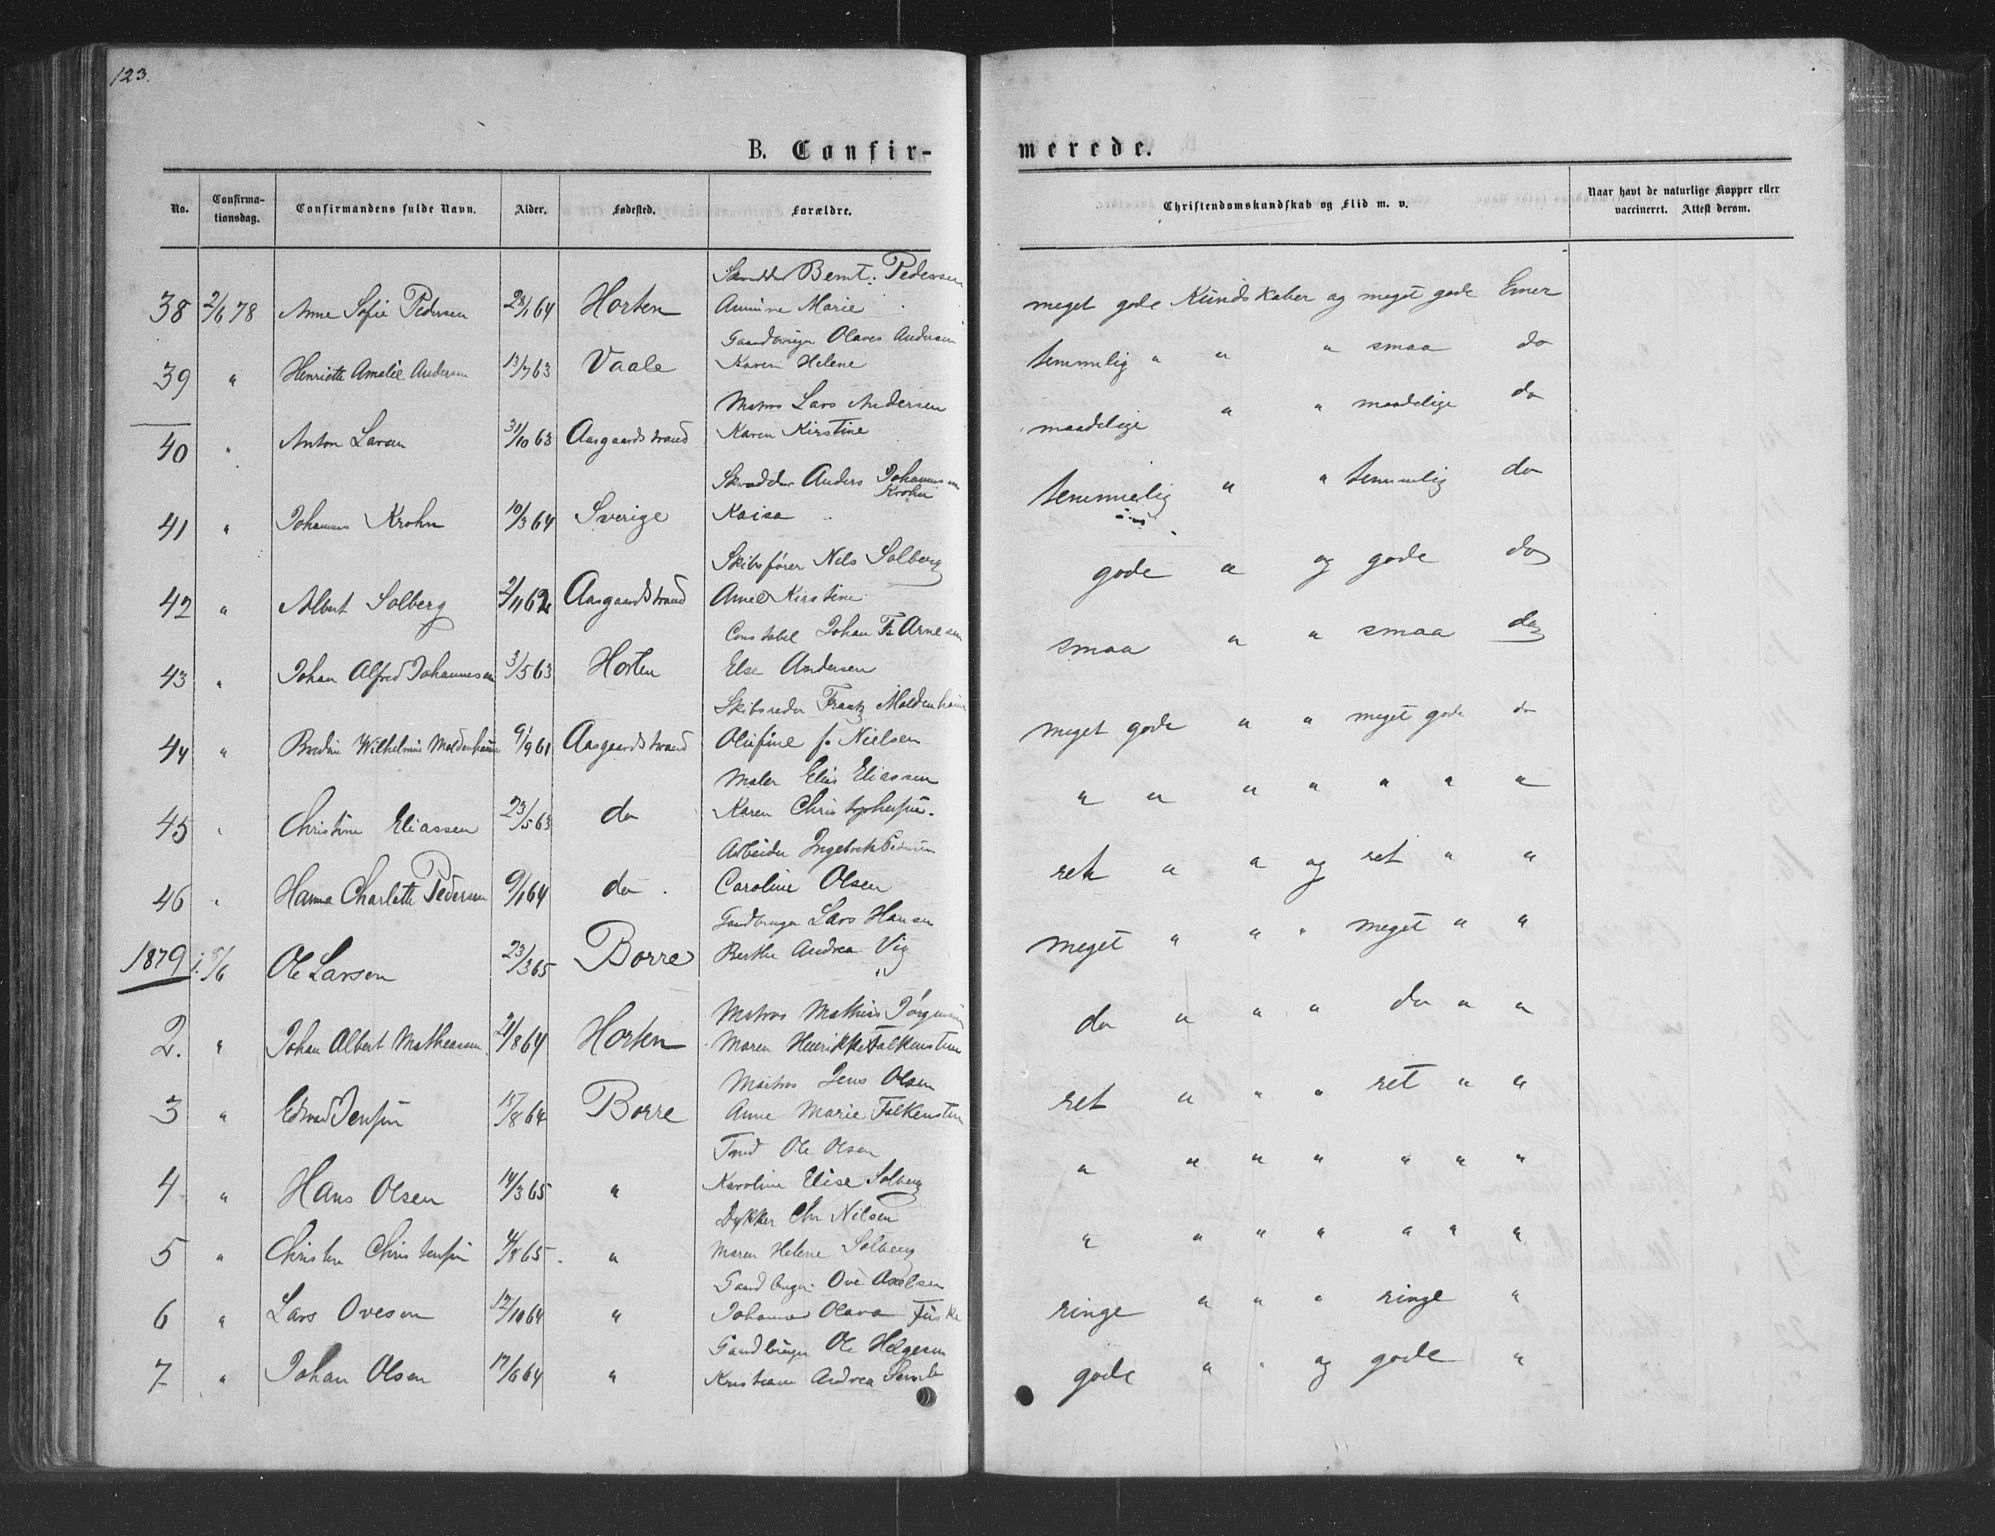 123.
B. Confir-
merede.
No.
Confirma-
tionsdag.
Confirmandens fulde Navn.
Alder.
Fødested.
Forældre.
Christendomskundskab og Flid m. v.
Naar havt de naturlige Kopper eller
vaccineret. Attest derom.
Skrædder Bernt. Pedersen
38 2/6 78 Anne Sofie Pedersen 28/1 64 Horten Annine Marie meget gode Kundskaber og meget gode Evner
Gaardbruger Olaves Andersen
39 " Henriette Amalie Andersen 13/7 63 Vaale Karen Helene temmelig " " " smaa do
Matros Lars Andersen
40 " Anton Larsen 31/10 63 Aasgaardstrand Karen Kirstine maadelige " " maadelige do
Skrædder Anders Johannesen
Krohn
41 " Johannes Krohn 10/3 64 Sverige Kaisa temmelig " " temmelig do
Skibsfører Nils Solberg
42 " Albert Solberg 2/11 62 Aasgaardstrand Anne Kirstine gode " og gode do
Constabel Johan Fr Arnesen
43 " Johan Alfred Johannesen 3/5 63 Horten Else Andersen smaa " " smaa do
Skibsreder Frantz Moldenhauer
44 " Wilhelmine Moldenhauer 9/9 61 Aasgaardstrand Olufine f. Nielsen meget gode " " meget gode do
Maler Elias Eliassen
45 " Christine Eliassen 23/5 63 do Karen Christophersen. " " " " " " "
Arbeider Pedersen
46 " Hanna Charlotte Pedersen 9/1 64 do. Caroline Olsen ret " " og ret " "
Gaardbruger Lars Hansen
1879 1. 8/6 Ole Larsen 23/3 65 Borre Berthe Andrea Vig meget " " " meget " "
Matros Mathias Jørgensen
2. " Johan Albert Matheasen 21/8 64 Horten Maren Henrikke Falkensten do " " " do " "
Matros Jens Olsen
3 " Edvard Jensen 17/8 64 Borre Anne Marie Falkensten ret " " " ret " "
Ole Olsen
4 " Hans Olsen 14/3 65 " Karoline Elise Solberg " " " " " " "
Dykker Chr Nilsen
5 " Christen Christensen 4/8 65. " Maren Helene Solberg " " " " " " "
Gaardbruger. Ove Axelsen
6 " Lars Ovesen 12/10 64 " Johanne Olava ringe " " " ringe "
Gaardbruger Ole Helgesen
7 " Johan Olsen 17/6 64 " Kristiane Andrea gode " " og gode "